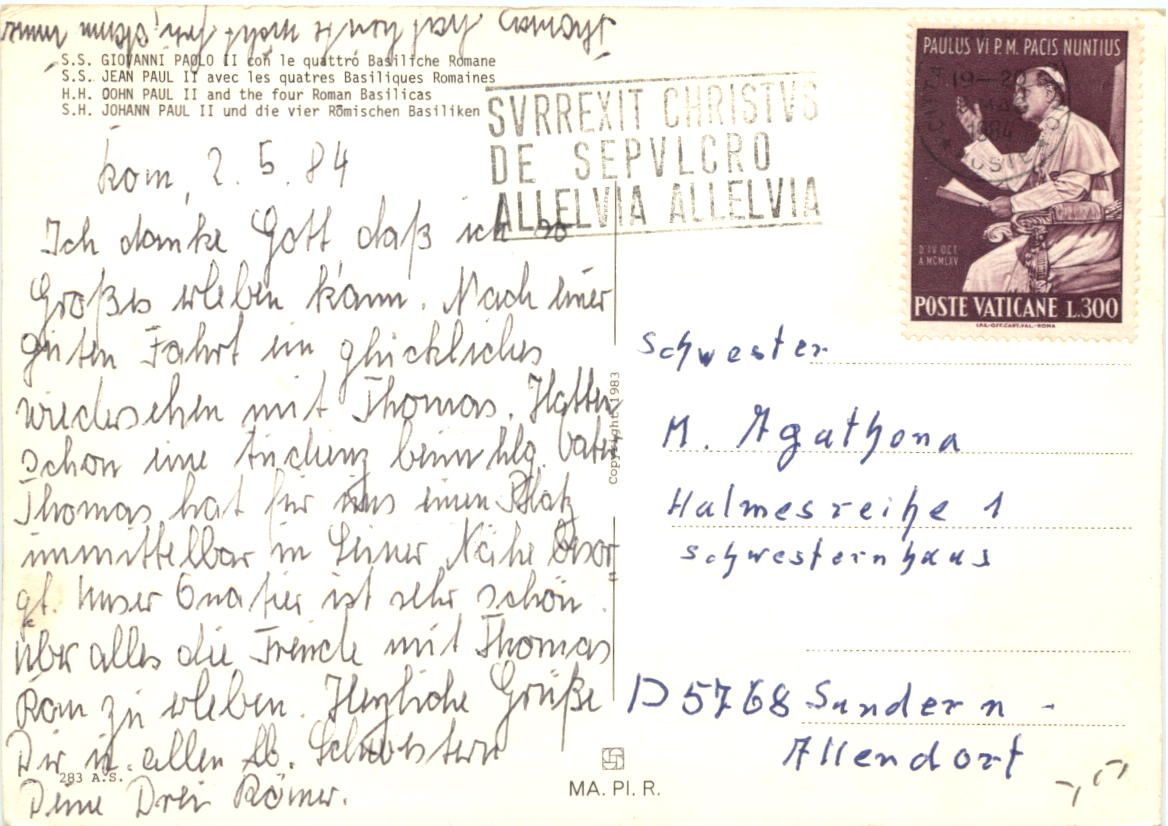 S.S. GIOVANNI PAOLO II con le quattro Basiliche Romane
S.S. JEAN PAUL II avec les quatres Basiliques Romaines
H.H. OOHN PAUL II and the four Roman Basilicas
S.H. JOHANN PAUL II und die vier Römischen Basiliken
Rom, 2. 5. 84
Ich danke Gott daß ich so
Großes erleben kann. Nach einer
guten Fahrt ein glückliches
wiedersehen mit Thomas. Hatten
schon eine Audienz beim hlg. Vater
Thomas hat für uns einen Platz
unmittelbar in Seiner Nähe besor
gt. Unser Quatier ist sehr schön.
über alles die Freude mit Thomas
Rom zu erleben. Herzliche Grüße
Dir u. allen lb. Schwestern
Deine Drei Römer.
283 A.S.
SVRREXIT CHRISTVS
DE SEPVLCRO
ALLELVIA ALLELVIA
PAULUS VI P.M. PACIS NUNTIUS
19-20
1984
D·IV OCT
A·MCMLXV
POSTE VATICANE L.300
Copyright 1983
Schwester
M. Agathona
Halmesreihe 1
Schwesternhaus
D 5768 Sundern -
Allendorf
MA. PI. R.